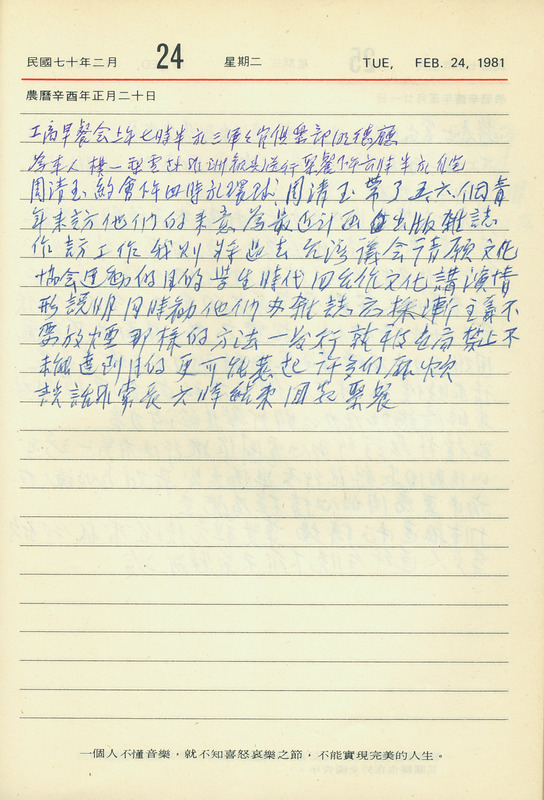 民國七十年二月 24 星期二 TUE, FEB. 24, 1981
農曆辛酉年正月二十日
工商早餐會上午七時半於三軍軍官俱樂部明德廳
為主人 下午六時半於
周清玉約會作四時於環球 周清玉帶了五、六個青
年來訪他們的來意為最近計画出版雜誌
作訪工作我則將過去台湾議会請願文化
協会運動的目的学生時代回台作文化講演情
形說明同時勸他們办雜誌应採漸主義不
要放煙那樣的方法一發行就被查高禁止不
達到目的更可能惹起許多的麻煩
談話非常長六時結束回家聚餐
一個人不懂音樂,就不知喜怒哀樂之節,不能實現完美的人生。